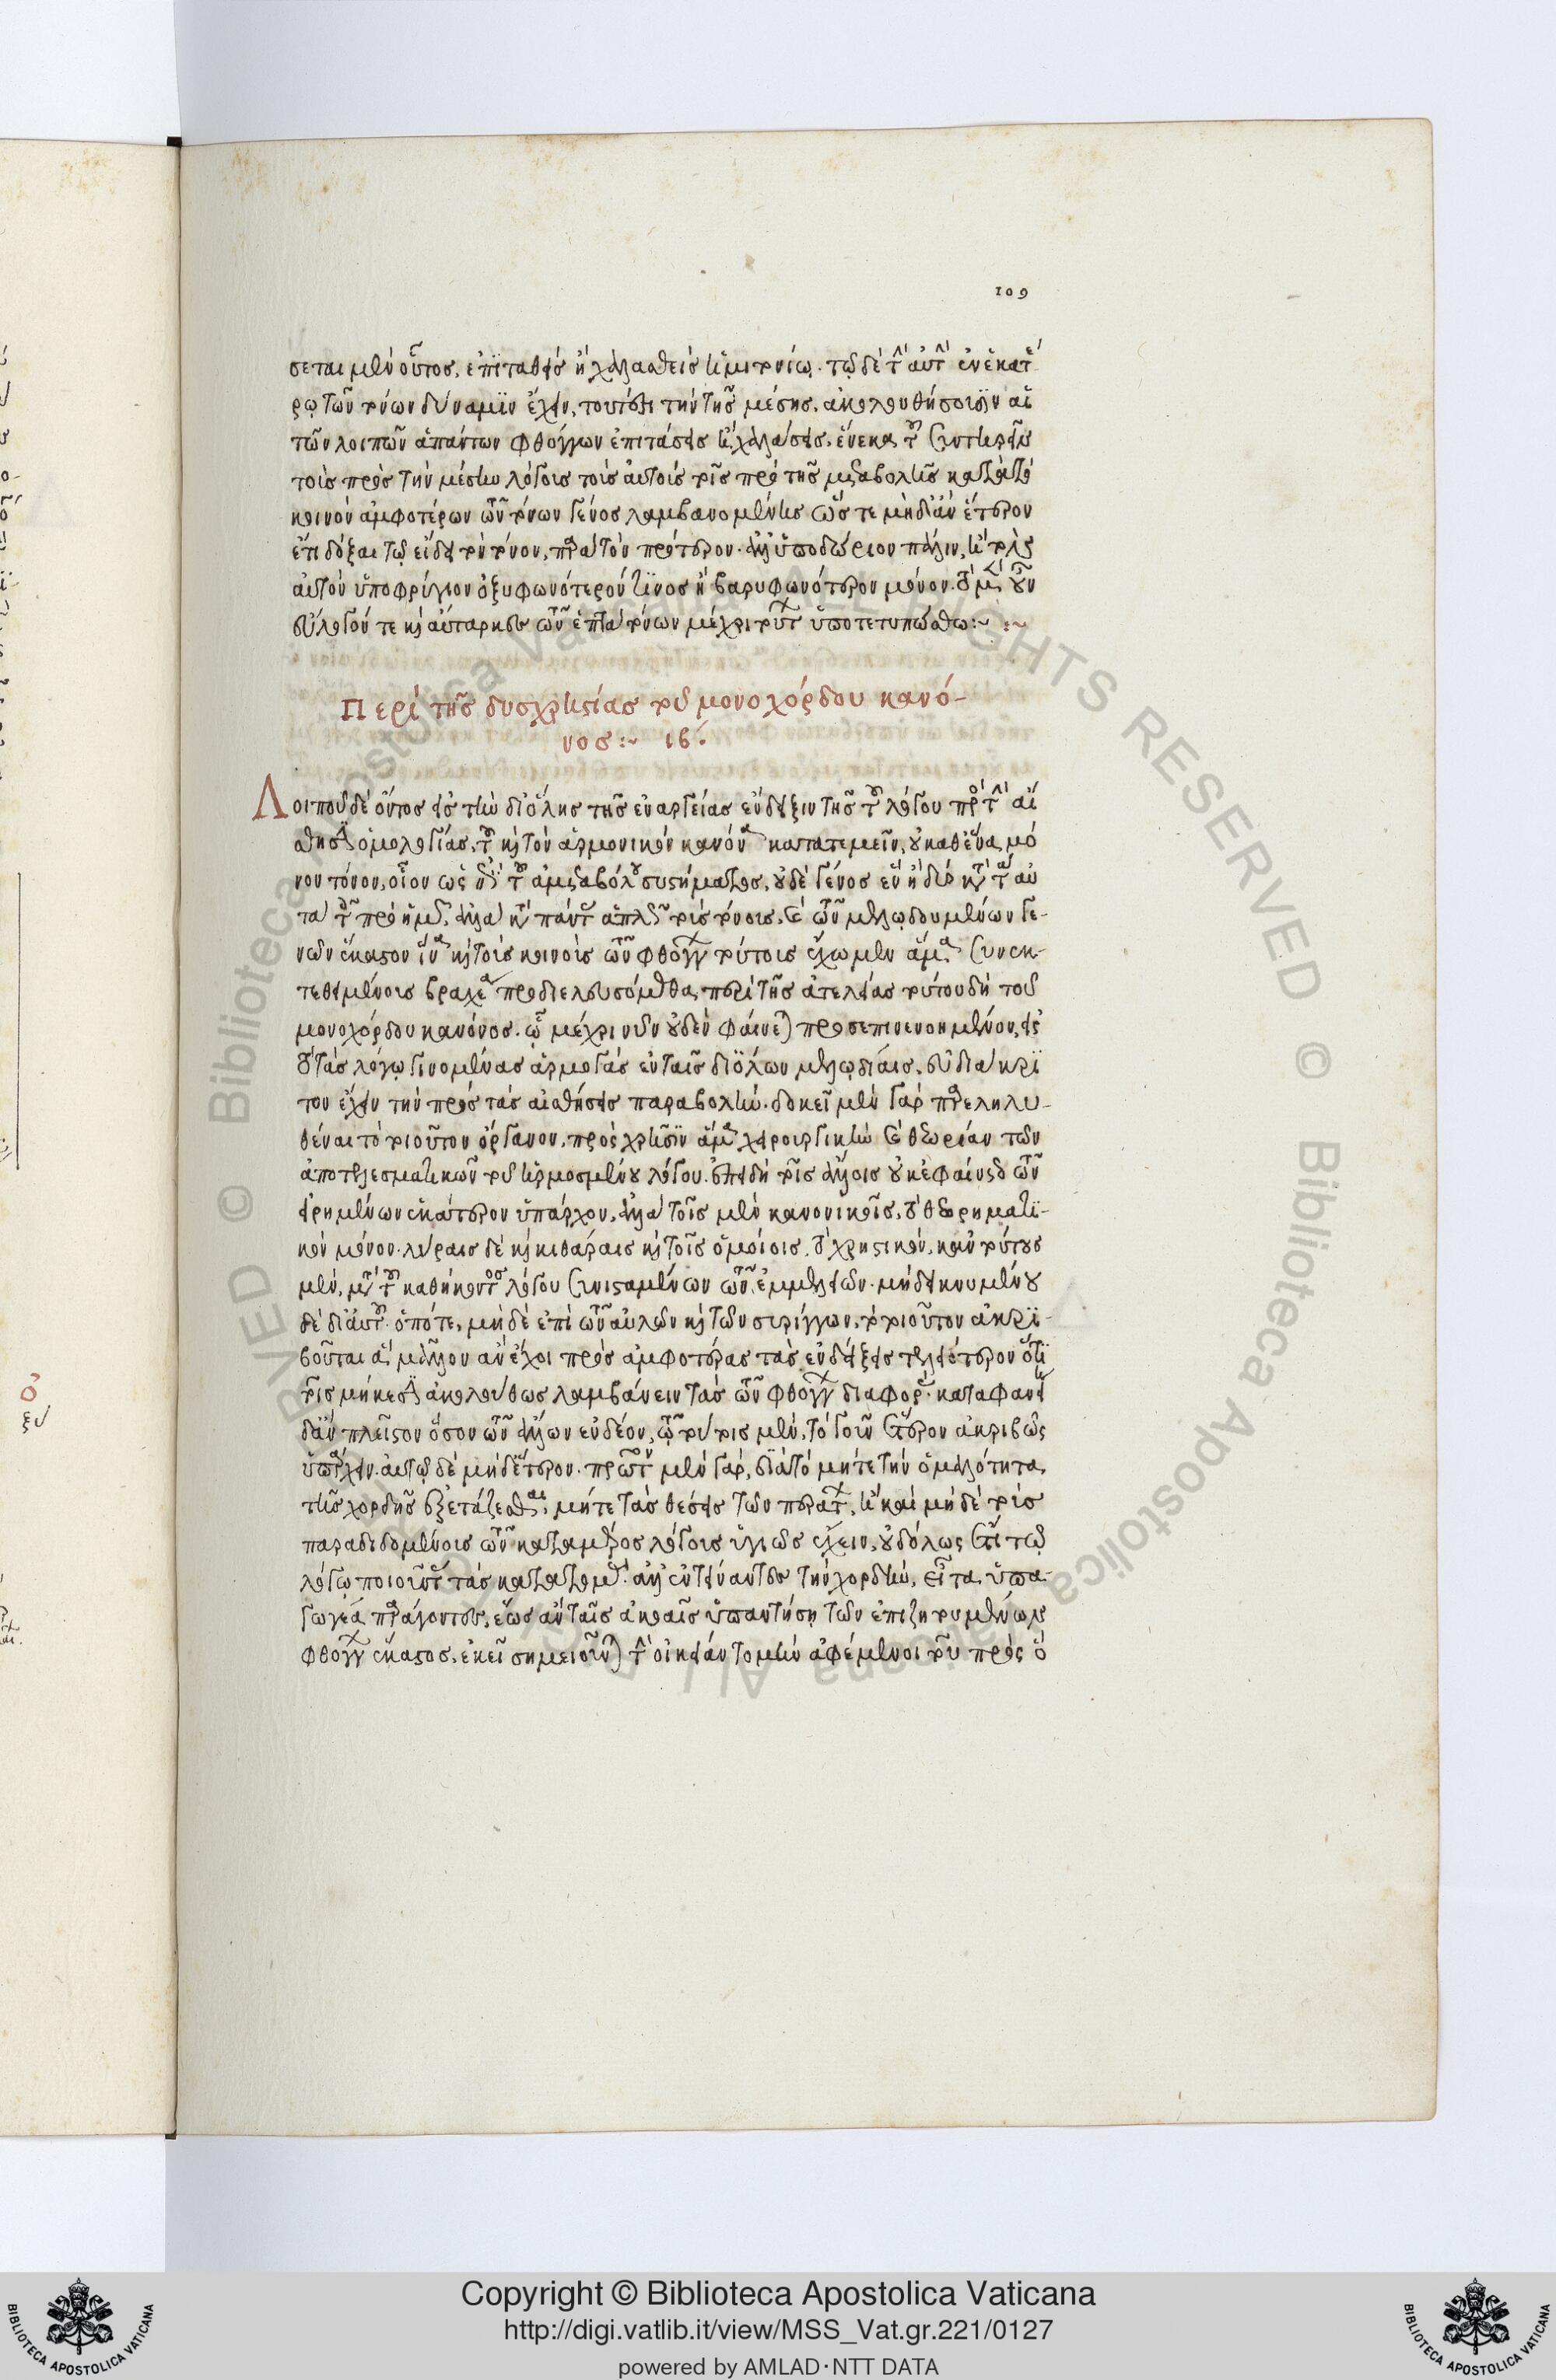 109
σεται μὲν οὗτος, ἐπιταθεὶς ἢ χαλασθεὶς ἡμιτονίῳ. τῷ δὲ τὴν αὐτὴν ἐν ἑκατέ
ρῳ τῶν τόνων δύναμιν ἔχειν, τουτέστι τὴν τῆς μέσης, ἀκολουθήσουσιν αἱ
τῶν λοιπῶν ἁπάντων φθόγγων ἐπιτάσεις ἢ χαλάσεις, ἕνεκα τοῦ συντηρεῖν
τοὺς πρὸς τὴν μέσην λόγους τοὺς αὐτοὺς τοῖς πρὸ τῆς μεταβολῆς κατὰ τὸ
κοινὸν ἀμφοτέρων τῶν τόνων γένος λαμβανομένης ὥστε μηδ' ἂν ἕτερον
ἔτι δόξαι τῷ εἴδει τὸν τόνον, παρὰ τὸν πρότερον. ἀλλ' ὑποδώριον πάλιν, ἢ τὸν
αὐτὸν ὑποφρύγιον ὀξυφωνότερόν τινος ἢ βαρυφωνότερον μόνον. τὸ μὲν οὖν
εὔλογόν τε καὶ αὔταρκες τῶν ἑπτὰ τόνων μέχρι τούτων ὑποτετυπώσθω:~ :~
Περὶ τῆς δυσχρηστίας τοῦ μονοχόρδου κανό-
νος:~ ιβ.
Λοιποῦ δὲ ὄντος εἰς τὴν δι' ὅλης τῆς ἐναργείας ἔνδειξιν τῆς τοῦ λόγου πρὸς τὴν αἴ
σθησιν ὁμολογίας, τοῦ καὶ τὸν ἁρμονικὸν κανόνα κατατεμεῖν, οὐ καθ' ἕνα μό
νον τόνον, οἷον ὡς ἐπὶ τοῦ ἀμεταβόλου συστήματος, οὐδὲ γένος ἓν ἢ δύο κατὰ τὰ αὐ
τὰ τοῖς πρὸ ἡμῶν, ἀλλὰ κατὰ πάντας ἁπλῶς τοὺς τόνους, καὶ τῶν μελῳδουμένων γε-
νῶν ἕκαστον ἵνα καὶ τοὺς κοινοὺς τῶν φθόγγων τόπους ἔχωμεν ἅμα συνεκ-
τεθειμένους βραχέα προδιελευσόμεθα, περὶ τῆς ἀτελείας τούτου δὴ τοῦ
μονοχόρδου κανόνος. ᾧ μέχρι νῦν οὐδὲν φαίνεται προσεπινενοημένον, εἰς
τὸ τὰς λόγῳ γινομένας ἁρμογὰς ἐν ταῖς δι' ὅλων μελῳδίαις, εὐδιάκρι
τον ἔχειν τὴν πρὸς τὰς αἰσθήσεις παραβολήν. δοκεῖ μὲν γὰρ παρεληλυ-
θέναι τὸ τοιοῦτον ὄργανον, πρὸς χρῆσιν ἅμα χειρουργικὴν καὶ θεωρίαν τῶν
ἀποτελεσματικῶν τοῦ ἡρμοσμένου λόγου. ἐπειδὴ τοῖς ἄλλοις οὐκ ἐφαίνετο τῶν
εἰρημένων ἑκάτερον ὑπάρχον, ἀλλὰ τοῖς μὲν κανονικοῖς, τὸ θεωρηματι-
κὸν μόνον. λύραις δὲ καὶ κιθάραις καὶ τοῖς ὁμοίοις, τὸ χρηστικόν, κἂν τούτοις
μέν, μετὰ τοῦ καθήκοντος λόγου συνισταμένων τῶν ἐμμελειῶν. μὴ δεικνυμένου
δὲ δι' αὐτῶν. ὁπότε, μηδὲ ἐπὶ τῶν αὐλῶν καὶ τῶν συρίγγων, τὸ τοιοῦτον ἀκρι-
βοῦται ἃ μᾶλλον ἂν ἔχοι πρὸς ἀμφοτέρας τὰς ἐνδείξεις τελειότερον ὅτι
τοῖς μήκεσιν ἀκολούθως λαμβάνειν τὰς τῶν φθόγγων διαφοράς. καταφανείη
δ' ἂν πλεῖστον ὅσον τῶν ἄλλων ἐνδέον, ᾧ τούτοις μέν, τὸ γοῦν ἕτερον ἀκριβῶς
ὑπάρχειν. αὐτῷ δὲ μηδέτερον. πρῶτον μὲν γάρ, διὰ τὸ μήτε τὴν ὁμαλότητα
τῆς χορδῆς ἐξετάζεσθαι, μήτε τὰς θέσεις τῶν περάτων, ἢ καὶ μηδὲ τοὺς
παραδιδομένους τῶν κατὰ μέρος λόγους ὑγιῶς ἔχειν, οὐδ' ὅλως ἔτι τῷ
λόγῳ ποιοῦνται τὰς κατατομάς. ἀλλ' ἐντείναντες τὴν χορδήν, εἶτα, ὑπα-
γωγέα παράγοντες, ἕως ἂν ταῖς ἀκοαῖς ὑπαντήσῃ τῶν ἐπιζητουμένων
φθόγγων ἕκαστος, ἐκεῖ σημειοῦνται τὴν οἰκείαν τομὴν ἀφέμενοι τοῦ πρὸς ὃ
ὀ
ξυ
Copyright © Biblioteca Apostolica Vaticana
http://digi.vatlib.it/view/MSS_Vat.gr.221/0127
powered by AMLAD·NTT DATA
BIBLIOTECA APOSTOLICA VATICANA
BIBLIOTECA APOSTOLICA VATICANA